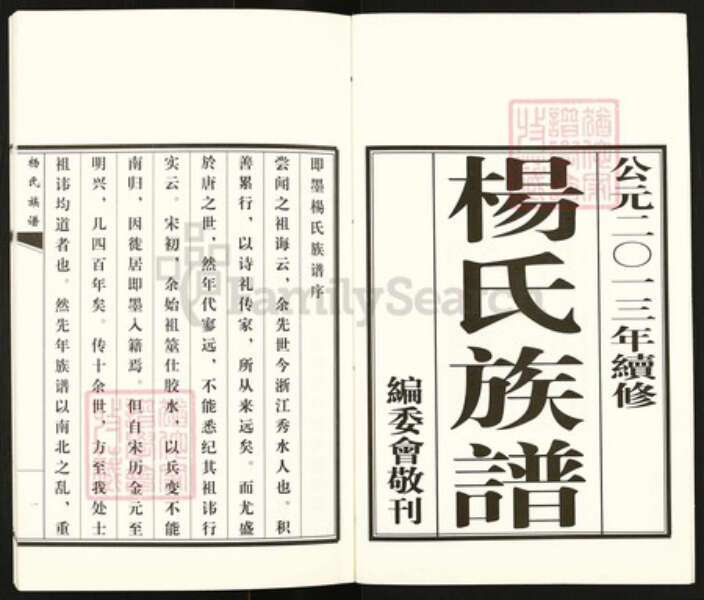 公元二〇一三年續修
楊氏族譜
編委會敬刊
即墨楊氏族谱序
尝闻之祖诲云，余先世今浙江秀水人也。积
善累行，以诗礼传家，所从来远矣。而尤盛
於唐之世，然年代寥远，不能悉纪其祖讳行
实云。宋初，余始祖筮仕胶水，以兵变不能
南归，因徙居即墨入籍焉。但自宋历金元至
明兴，几四百年矣。传十余世，方至我处士
祖讳均道者也。然先年族谱以南北之乱，重
杨氏族谱
一
FamilySearch